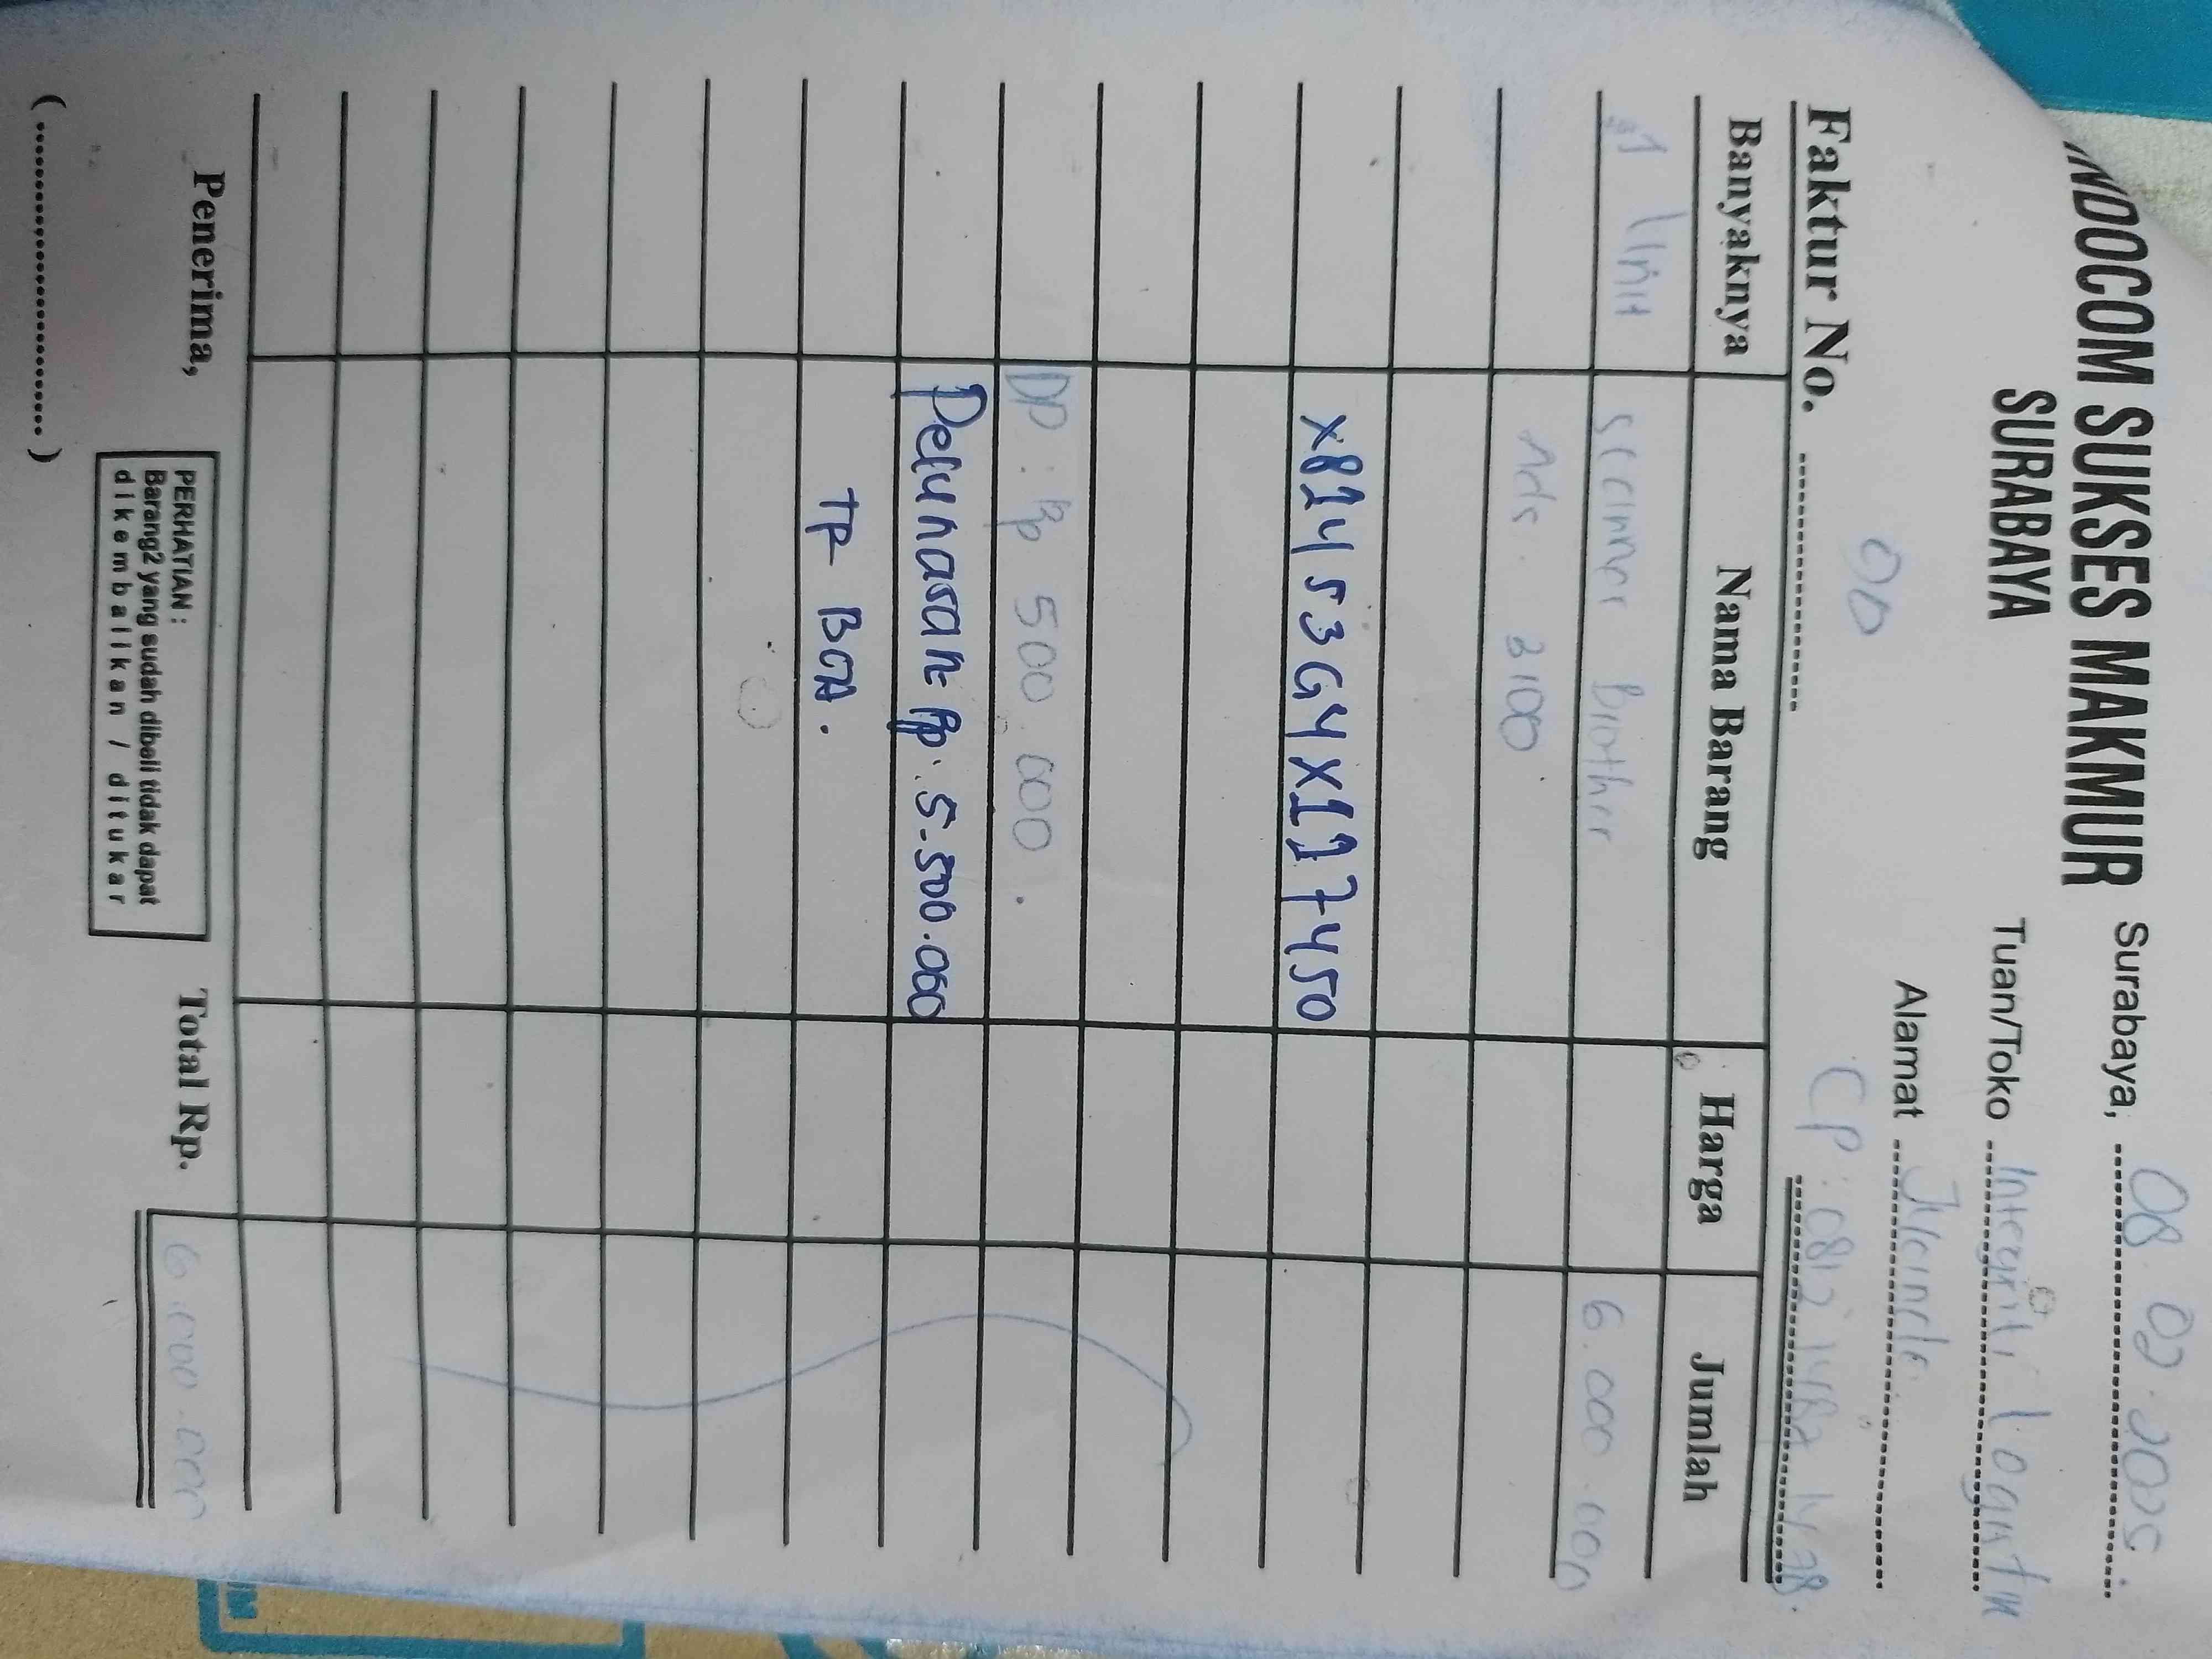 INDOCOM SUKSES MAKMUR
SURABAYA
Surabaya, 08. 02. 2025.
Tuan/Toko Logantin
Alamat
CP : 0812
Faktur No.
Banyaknya Nama Barang Harga Jumlah
1 Unit Scanner Brother 6.000.000
Ads. 3100
X814S3G4X117450
DP : Rp 500.000.
Pelunasan = Rp. 5.500.000
TF BCA.
Penerima,
PERHATIAN :
Barang2 yang sudah dibeli tidak dapat
dikembalikan / ditukar
Total Rp. 6.000.000
(.............................)